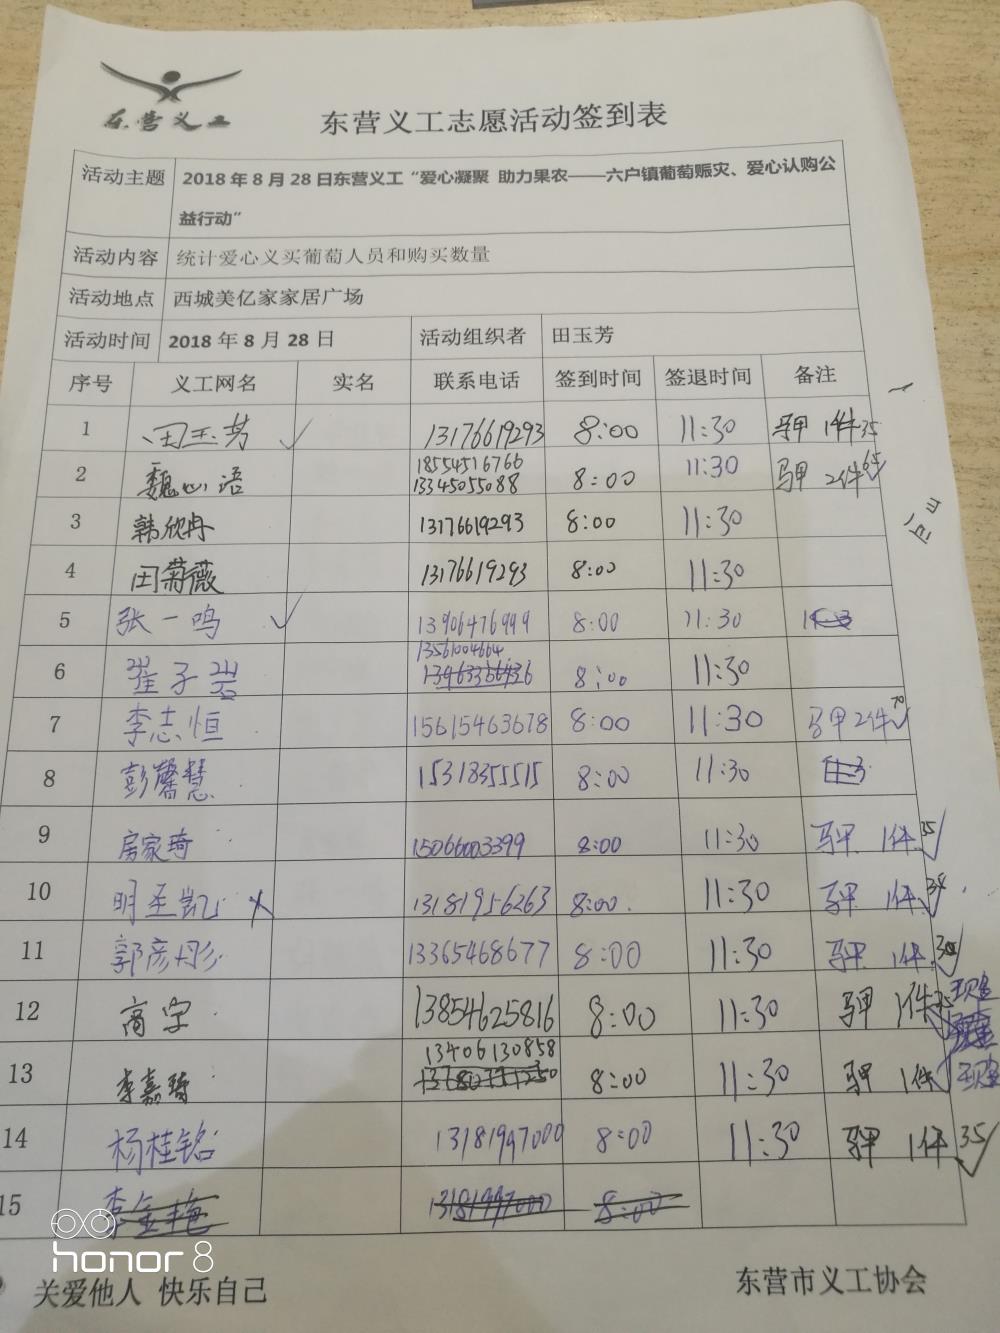 东营义工
东营义工志愿活动签到表
活动主题 2018年8月28日东营义工“爱心凝聚 助力果农——六户镇葡萄赈灾、爱心认购公
益行动”
活动内容 统计爱心义买葡萄人员和购买数量
活动地点 西城美亿家家居广场
活动时间 2018年8月28日 活动组织者 田玉芳
序号 义工网名 实名 联系电话 签到时间 签退时间 备注
1 田玉芳 ✓ 13176619293 8:00 11:30 马甲 1件 35
2 魏心语 18554516766 8:00 11:30 马甲 2件 65
13345055088
3 韩欣冉 13176619293 8:00 11:30
4 田蔚薇 13176619293 8:00 11:30
5 张一鸣 ✓ 13906476999 8:00 11:30
6 崔子岩 13561004664 8:00 11:30
7 李志恒 15615463678 8:00 11:30 马甲2件 70
8 彭馨慧 15318355515 8:00 11:30
9 房家琦 15066003399 8:00 11:30 马甲 1件 35 ✓
10 明圣凯 13181956263 8:00 11:30 马甲 1件
11 郭彦彤 13365468677 8:00 11:30 马甲 1件
12 商宇 13854625816 8:00 11:30 马甲 1件 现金
13 李嘉琦 13406130858 8:00 11:30 马甲 1件 现金
14 杨桂铭 13181997000 8:00 11:30 马甲 1件 35 ✓
15 李金艳 13181997000 8:00
honor 8
关爱他人 快乐自己 东营市义工协会